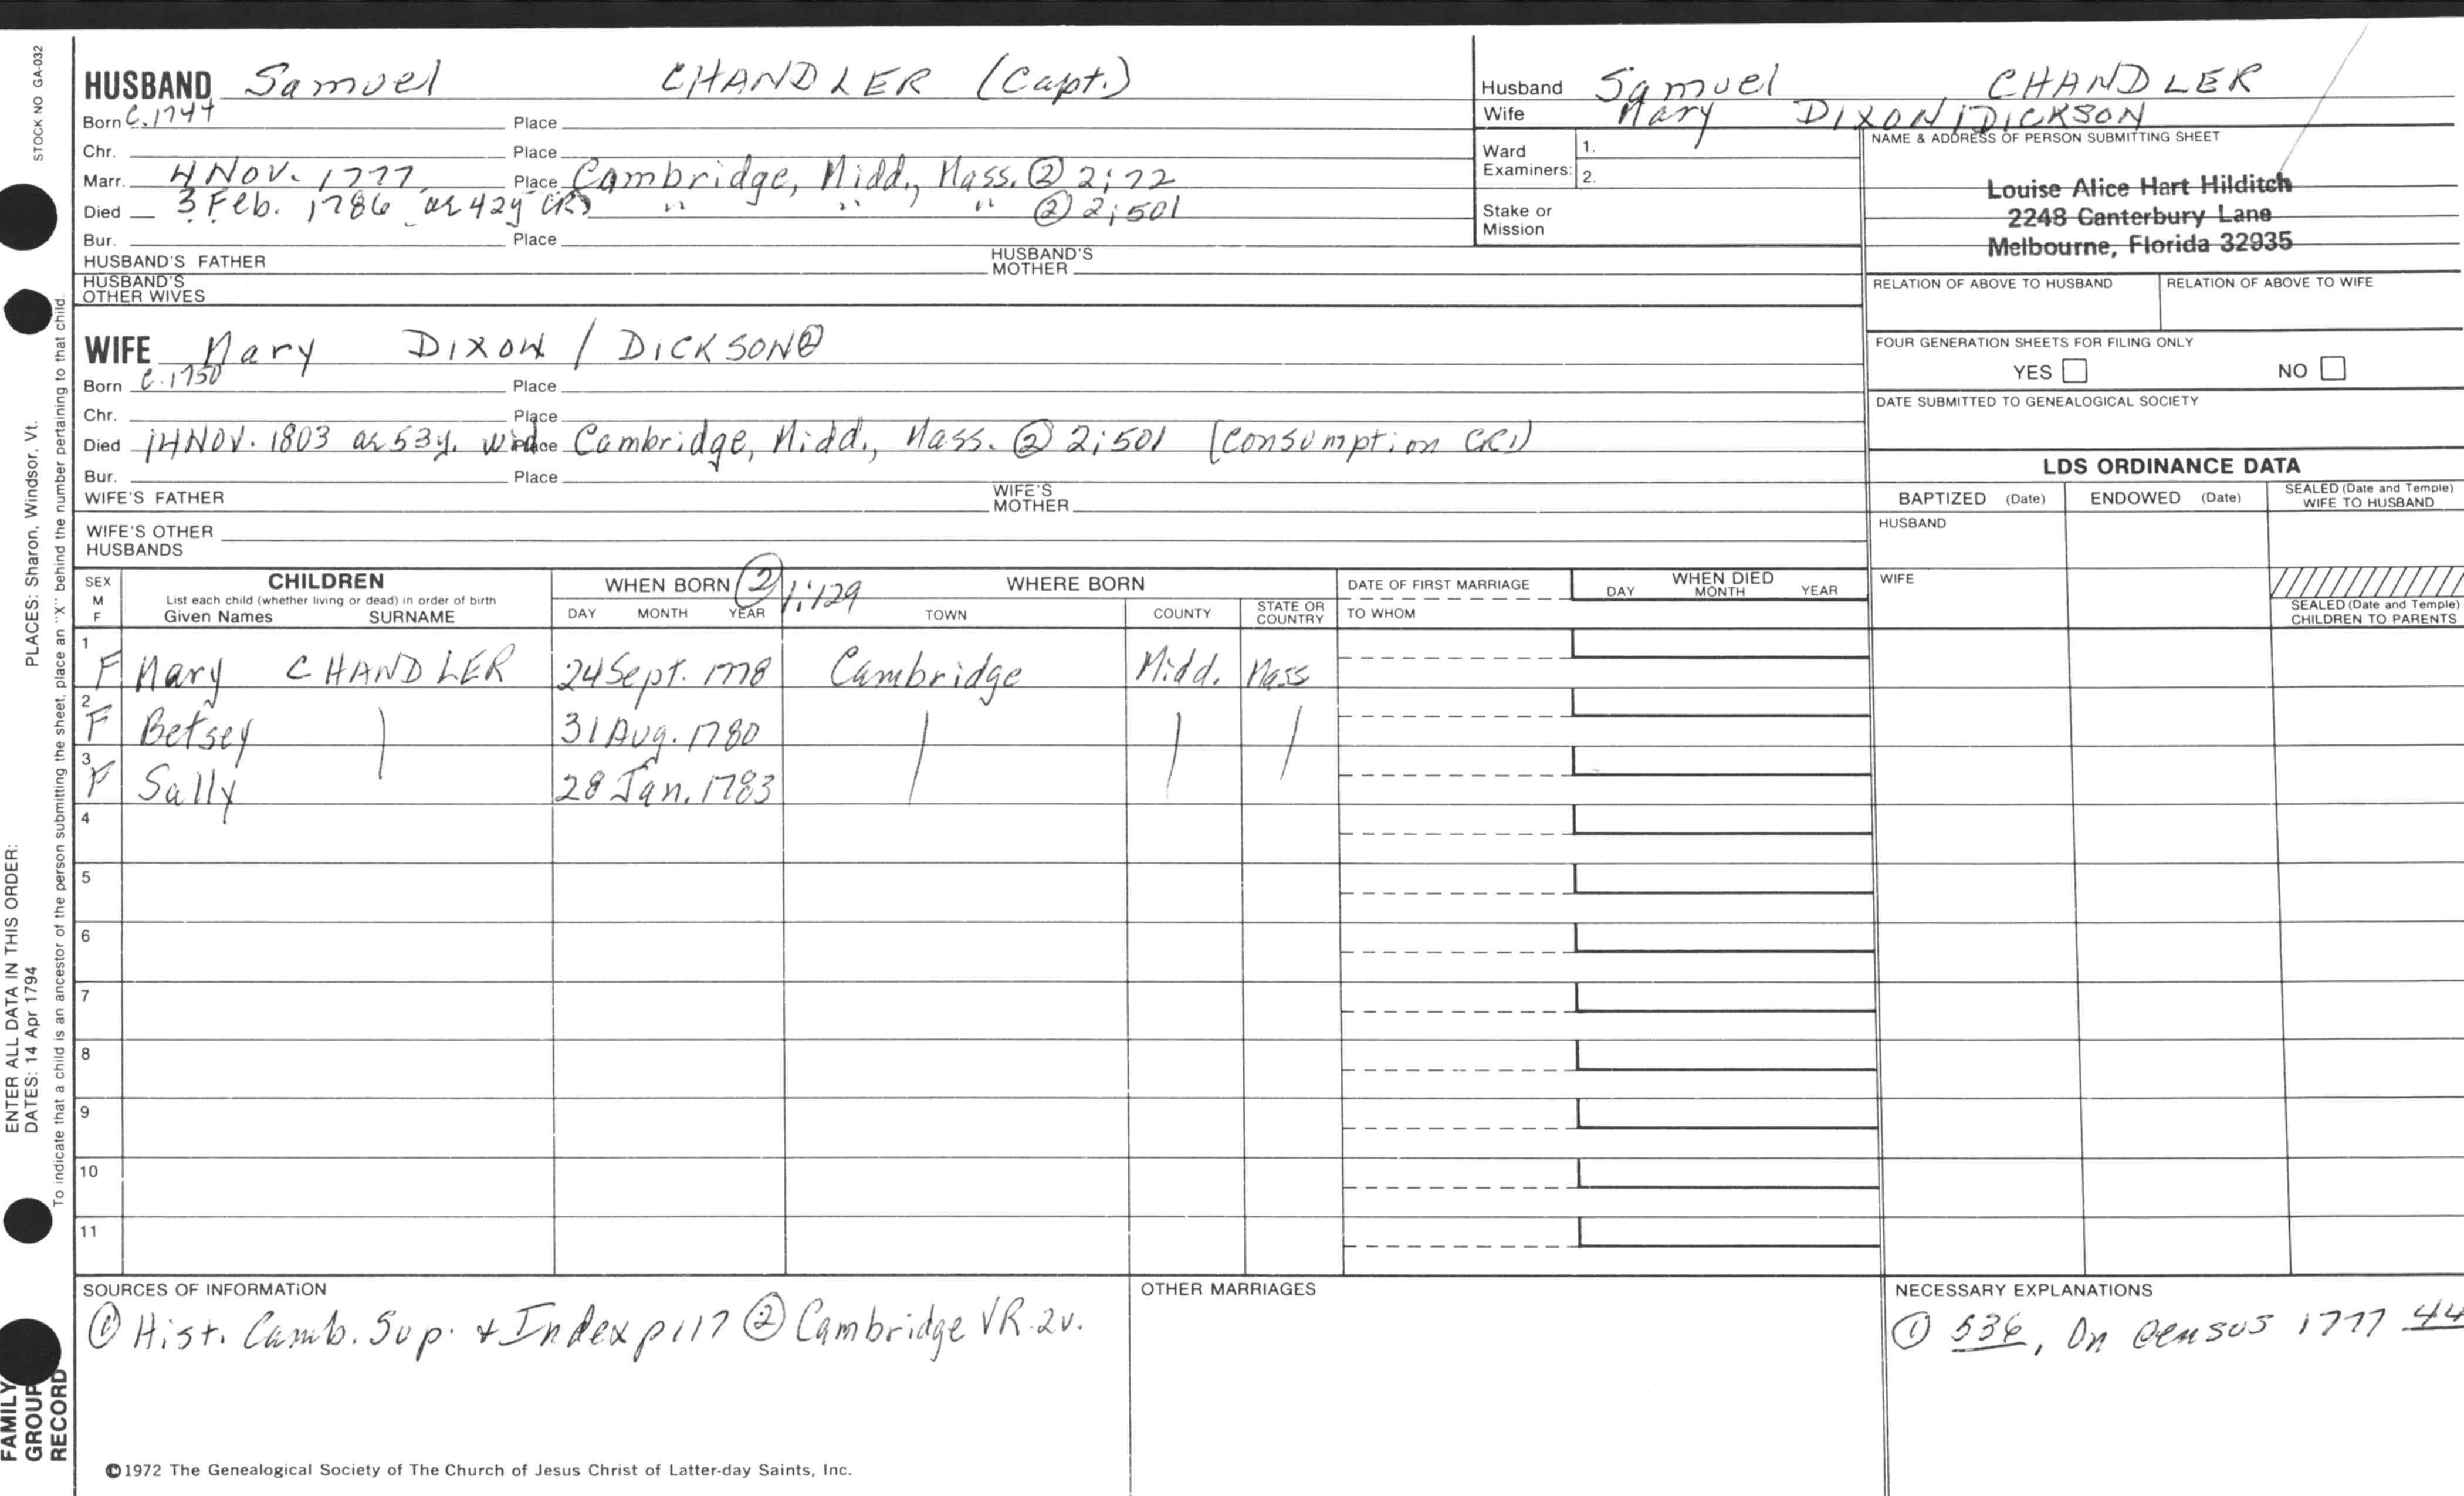 STOCK NO GA-032
PLACES: Sharon, Windsor, Vt.
ENTER ALL DATA IN THIS ORDER:
DATES: 14 Apr 1794
To indicate that a child is an ancestor of the person submitting the sheet, place an "X" behind the number pertaining to that child.
FAMILY
GROUP
RECORD
HUSBAND Samuel CHANDLER (Capt.)
Born C. 1744 Place
Chr. Place
Marr. 4 Nov. 1777 Place Cambridge, Midd., Mass. ② 2;72
Died 3 Feb. 1786 ae 42y " " " ② 2;501
Bur. Place
HUSBAND'S FATHER HUSBAND'S MOTHER
HUSBAND'S OTHER WIVES
WIFE Mary DIXON / DICKSON ②
Born C. 1750 Place
Chr. Place
Died 14 Nov. 1803 ae 53y. wid. Place Cambridge, Midd., Mass. ② 2;501 [Consumption CR1)
Bur. Place
WIFE'S FATHER WIFE'S MOTHER
WIFE'S OTHER HUSBANDS
Husband Samuel CHANDLER
Wife Mary DIXON / DICKSON
Ward Examiners: 1.
2.
Stake or Mission
NAME & ADDRESS OF PERSON SUBMITTING SHEET
Louise Alice Hart Hilditch
2248 Canterbury Lane
Melbourne, Florida 32935
RELATION OF ABOVE TO HUSBAND RELATION OF ABOVE TO WIFE
FOUR GENERATION SHEETS FOR FILING ONLY
YES NO
DATE SUBMITTED TO GENEALOGICAL SOCIETY
LDS ORDINANCE DATA
BAPTIZED (Date) ENDOWED (Date) SEALED (Date and Temple) WIFE TO HUSBAND
HUSBAND
WIFE
SEALED (Date and Temple) CHILDREN TO PARENTS
SEX M F
CHILDREN
List each child (whether living or dead) in order of birth
Given Names SURNAME
WHEN BORN ② 1:129
DAY MONTH YEAR
WHERE BORN
TOWN COUNTY STATE OR COUNTRY
DATE OF FIRST MARRIAGE
TO WHOM
WHEN DIED
DAY MONTH YEAR
1 F Mary CHANDLER 24 Sept. 1778 Cambridge Midd. Mass
2 F Betsey 31 Aug. 1780
3 F Sally 28 Jan. 1783
4
5
6
7
8
9
10
11
SOURCES OF INFORMATION
① Hist. Camb. Sup. + Index p 117 ② Cambridge VR. 2v.
OTHER MARRIAGES
NECESSARY EXPLANATIONS
① 536, On Census 1777 44
©1972 The Genealogical Society of The Church of Jesus Christ of Latter-day Saints, Inc.